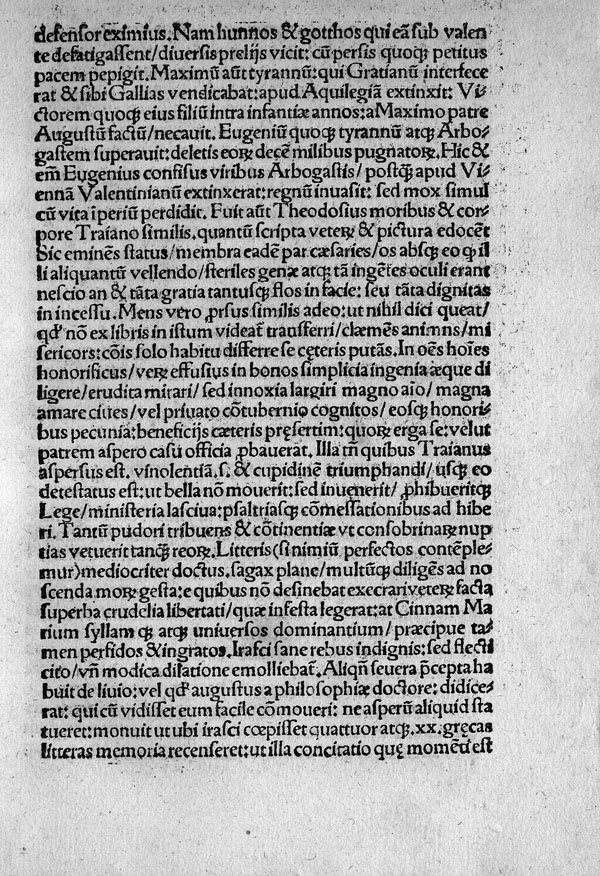 defenſor eximius. Nam hunnos & gotthos qui eā ſub valen
te defatigaſſent/diuerſis prelijs vicit: cū perſis quoqꝫ petitus
pacem pepigit. Maximū aūt tyrannū: qui Gratianū interfece
rat & ſibi Gallias vendicabat: apud Aquilegiā extinxit: Vi⸗
ctorem quoqꝫ eius filiū intra infantiæ annos: a Maximo patre
Auguſtū factū/necauit. Eugeniū quoqꝫ tyrannū atqꝫ Arbo⸗
gaſtem ſuperauit: deletis eoꝝ decē milibus pugnatoꝝ. Hic &
em̄ Eugenius confiſus viribus Arbogaſtis/ poſtqꝫ apud Vi⸗
ennā Valentinianū extinxerat: regnū inuaſit: ſed mox ſimul
cū vita īperiū perdidit. Fuit aūt Theodoſius moribus & cor⸗
pore Traiano ſimilis. quantū ſcripta veteꝝ & pictura edocēt
Sic eminēs ſtatus/membra eadē par cæſaries/os abſqꝫ eo ꝙ il
li aliquantū vellendo/ſteriles genæ atqꝫ tā ingētes oculi erant
neſcio an & tāta gratia tantuſqꝫ flos in facie: ſeu tāta dignitas
in inceſſu. Mens vero ꝓrſus ſimilis adeo: ut nihil dici queat/
qđ nō ex libris in iſtum videat᷑ tranſferri/clæmens animns/mi
ſericors: cōis ſolo habitu differre ſe cęteris putās. In oēs hoīes
honorificus/veꝝ effuſius in bonos ſimplicia ingenia æque di
ligere/erudita mirari/ſed innoxia largiri magno aīo/ magna
amare ciues/vel priuato cōtubernio cognitos/eoſqꝫ honori⸗
bus pecunia: beneficijs cæteris pręſertim: quoꝝ erga ſe: velut
patrem aſpero caſu officia ꝓbauerat. Illa tn̄ quibus Traianus
aſperſus eſt. vinolentiā. ſ. & cupidinē triumphandi/ uſqꝫ eo
deteſtatus eſt: ut bella nō mouerit: ſed inuenerit/ ꝓhibueritqꝫ
Lege/miniſteria laſciua: pſaltriaſqꝫ cōmeſſationibus ad hibe
ri. Tantū pudori tribuens & cōtinentiæ vt conſobrinaꝝ nup
tias vetuerit tanqꝫ reoꝝ. Litteris (ſi nimiū perfectos contēple⸗
mur) mediocriter doctus. ſagax plane/multūqꝫ diligēs ad no
ſcenda moꝝ geſta: e quibus nō deſinebat execrari veteꝝ facta
ſuperba crudelia libertati/quæ infeſta legerat: at Cinnam Ma
rium ſyllam qꝫ atqꝫ uniuerſos dominantium/præcipue ta⸗
men perfidos & ingratos. Iraſci ſane rebus indignis: ſed flecti
cito/vn̄ modica dilatione emolliebat᷑. Aliqn̄ ſeuera p̄cepta ha
buit de liuio: vel qđ auguſtus a philoſophiæ doctore: didice⸗
rat: qui cū vidiſſet eum facile cōmoueri: ne aſperū aliquid ſta
tueret: monuit ut ubi iraſci cœpiſſet quattuor atqꝫ. xx. gręcas
litteras memoria recenſeret: ut illa concitatio quę momēti eſt